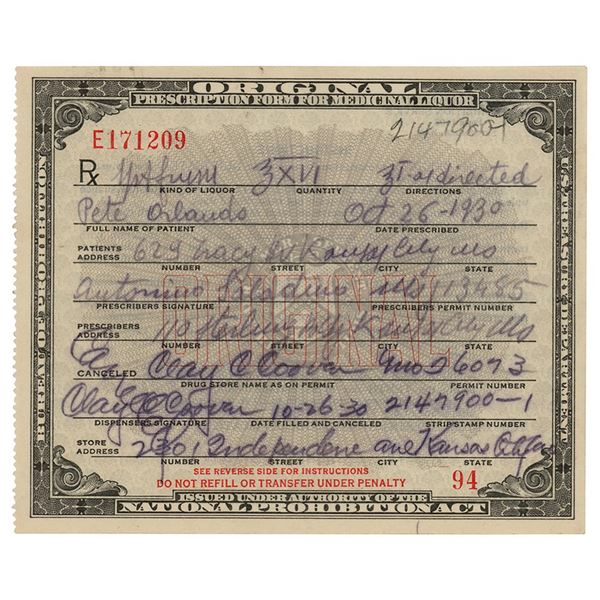 ORIGINAL
PRESCRIPTION FORM FOR MEDICINAL LIQUOR
E171209
21479001
Rx ʒXVI ʒI as directed
KIND OF LIQUOR QUANTITY DIRECTIONS
Pete Orlando Oct 26-1930
FULL NAME OF PATIENT DATE PRESCRIBED
PATIENTS ADDRESS 629 Tracy Kansas City Mo
NUMBER STREET CITY STATE
Antonino 113485
PRESCRIBERS SIGNATURE PRESCRIBERS PERMIT NUMBER
PRESCRIBERS ADDRESS 110 Kansas City Mo
NUMBER STREET CITY STATE
CANCELED Clay C Coover Mo 26073
DRUG STORE NAME AS ON PERMIT PERMIT NUMBER
Clay C Coover 10-26 30 2147900-1
DISPENSERS SIGNATURE DATE FILLED AND CANCELED STRIP STAMP NUMBER
STORE ADDRESS 2 Independence ave Kansas City
NUMBER STREET CITY STATE
SEE REVERSE SIDE FOR INSTRUCTIONS
DO NOT REFILL OR TRANSFER UNDER PENALTY
94
ISSUED UNDER AUTHORITY OF THE
NATIONAL PROHIBITION ACT
ORIGINAL